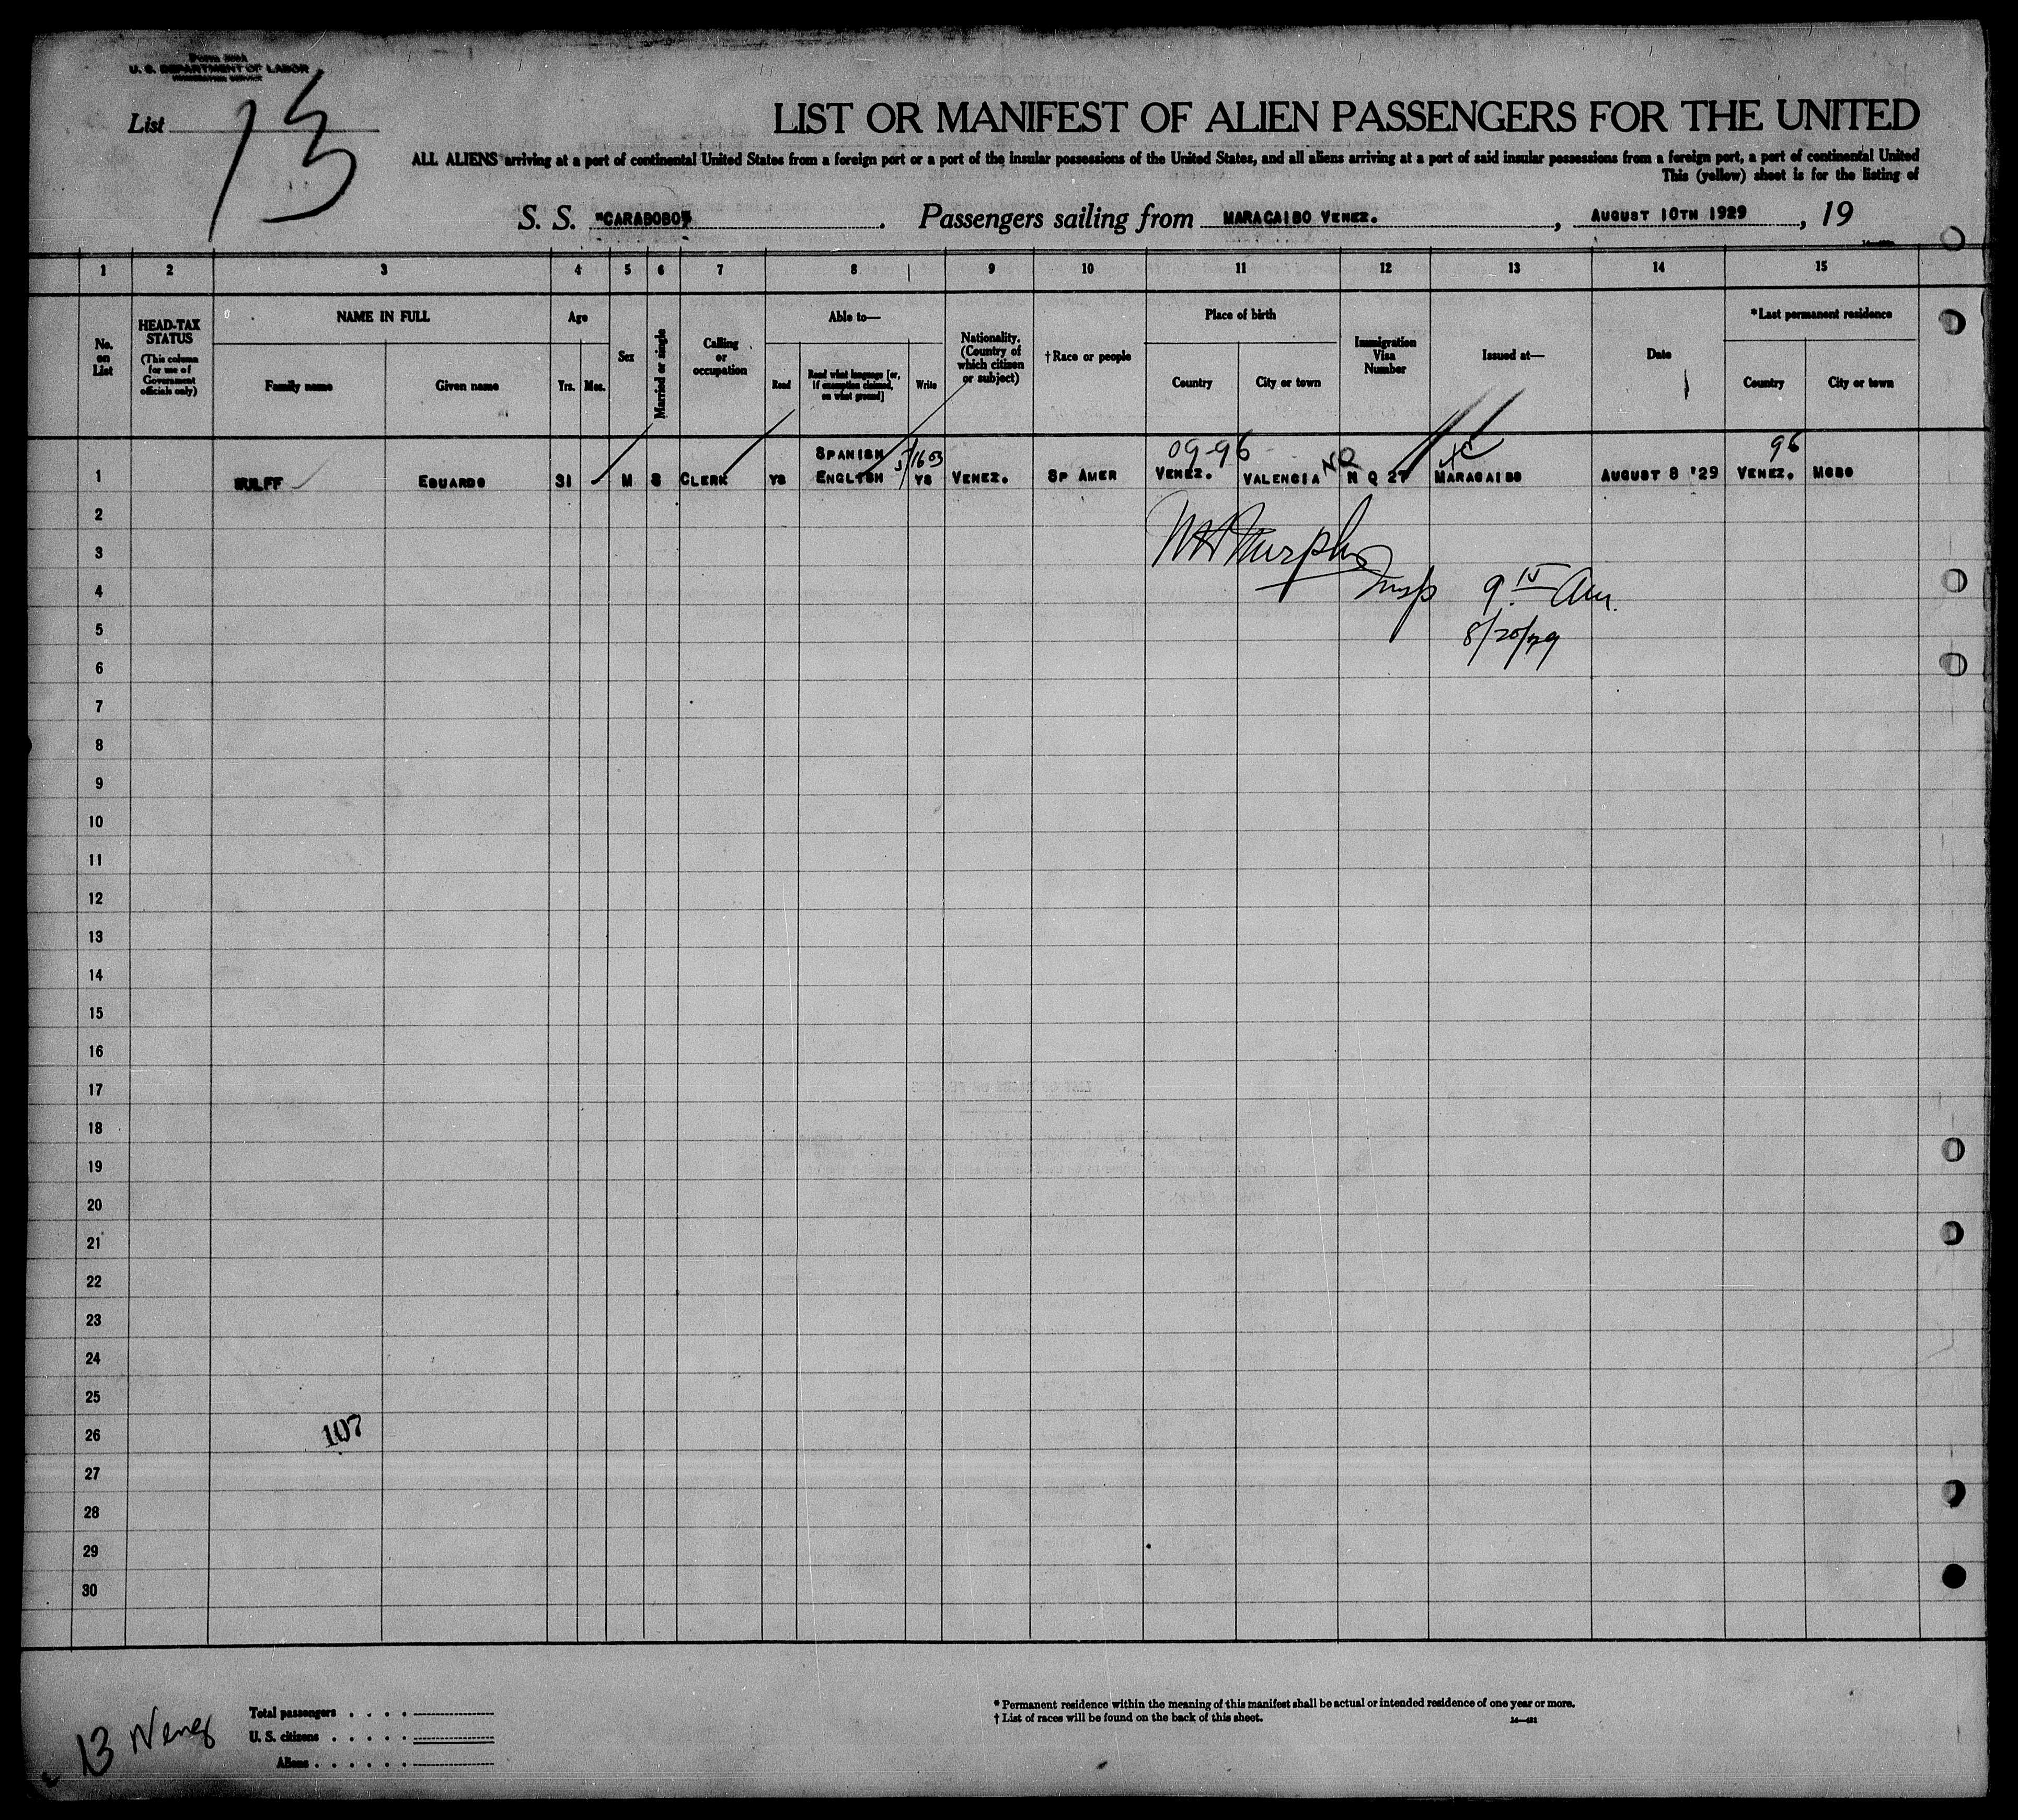 U. S. DEPARTMENT OF LABOR
List 13
LIST OR MANIFEST OF ALIEN PASSENGERS FOR THE UNITED
ALL ALIENS arriving at a port of continental United States from a foreign port or a port of the insular possessions of the United States, and all aliens arriving at a port of said insular possessions from a foreign port, a port of continental United
This (yellow) sheet is for the listing of
S. S. "CARABOBO" . Passengers sailing from MARACAIBO VENEZ. , AUGUST 10TH 1929 , 19
1 2 3 4 5 6 7 8 9 10 11 12 13 14 15
No. on List
HEAD-TAX STATUS (This column for use of Government officials only)
NAME IN FULL Family name Given name
Age Yrs. Mos.
Sex
Married or single
Calling or occupation
Able to— Read Read what language [or, if exemption claimed, on what ground] Write
Nationality. (Country of which citizen or subject)
†Race or people
Place of birth Country City or town
Immigration Visa Number
Issued at—
Date
*Last permanent residence Country City or town
09-96 96
1 WULFF EDUARDO 31 M S CLERK YS SPANISH ENGLISH YS VENEZ. SP AMER VENEZ. VALENCIA NQ N Q 27 MARACAIBO AUGUST 8 '29 VENEZ. MCBO
2
3 Murphy
4 Insp 9.15 Am.
5 8/20/29
6
7
8
9
10
11
12
13
14
15
16
17
18
19
20
21
22
23
24
25
26 107
27
28
29
30
13 Venez
Total passengers . . . .
U. S. citizens . . . . .
Aliens . . . . . .
* Permanent residence within the meaning of this manifest shall be actual or intended residence of one year or more.
† List of races will be found on the back of this sheet.